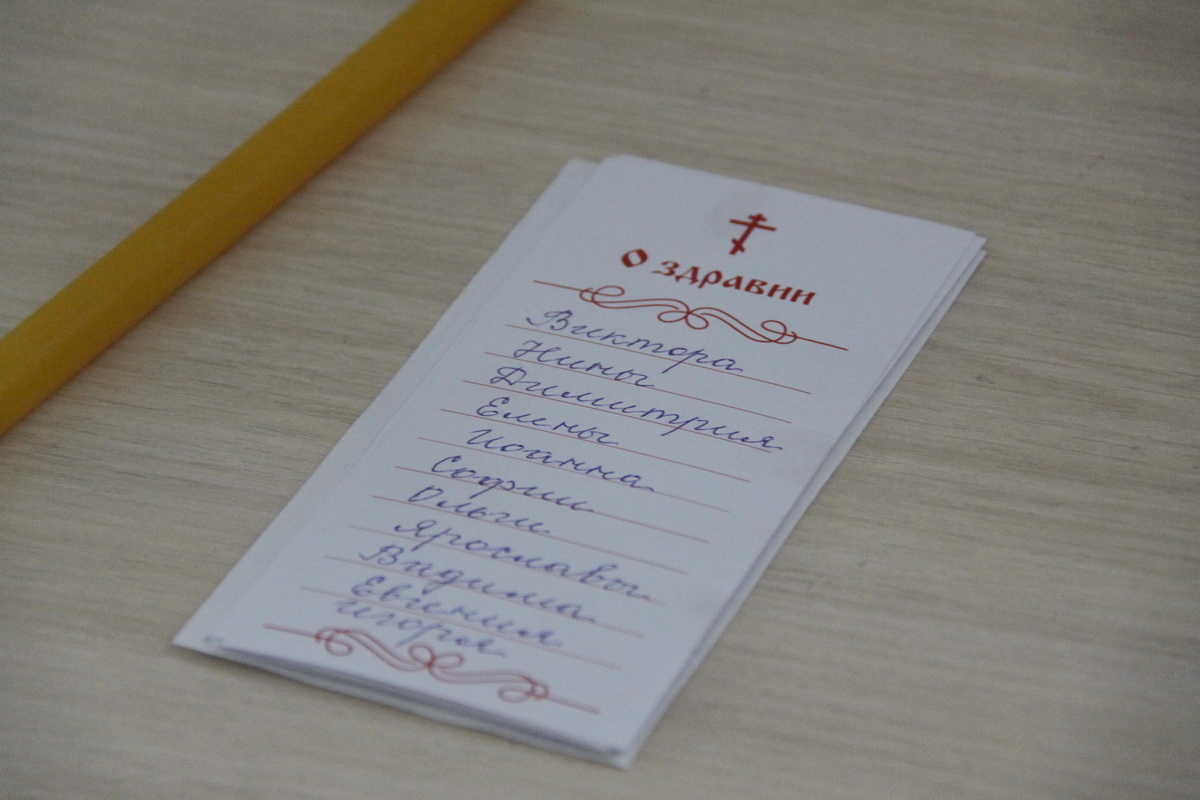 О здравии
Виктора
Нины
Димитрия
Елены
Иоанна
Софии
Ольги
Ярославы
Вадима
Евгения
Игоря